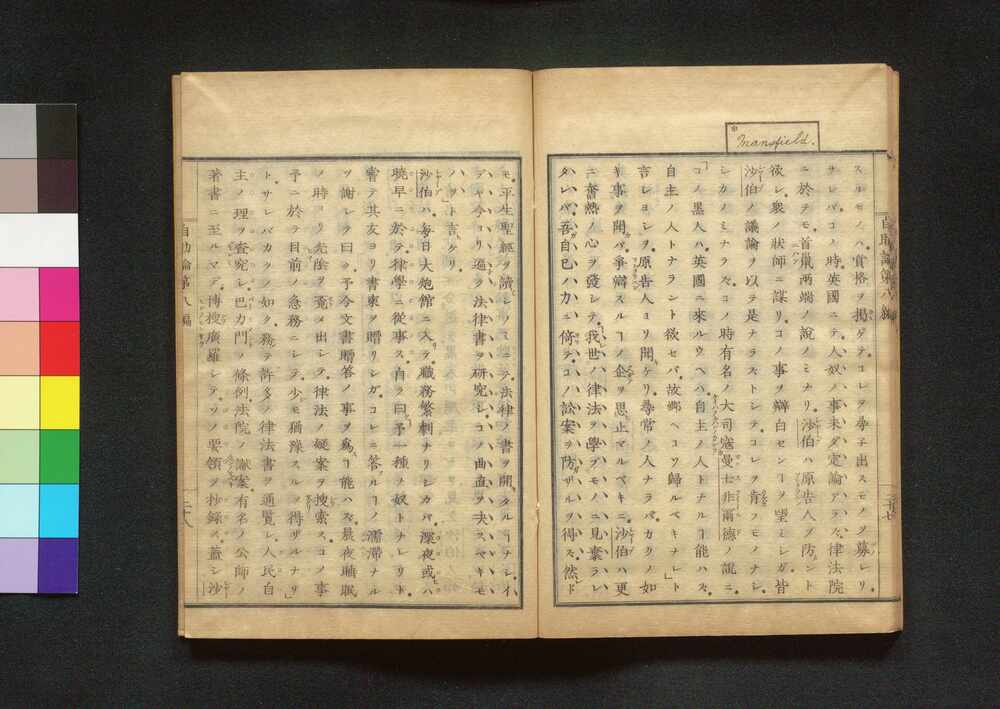 Mansfield.
スルモノハ賞格ヲ掲ゲテコレヲ尋子出スモノヲ募レリ
サレバコノ時英國ニテ人奴ノ事未ダ定論アラズ律法院
ニ於テモ首鼠兩端ノ說ノミナリ沙伯ハ原告人ヲ防ント
欲シ衆ノ狀師ニ謀リコノ事ヲ辯白センヿヲ望ミシガ皆
沙伯ノ議論ヲ以テ是ナラズトシテコレヲ肯フモノナシ
シカノミナラズコノ時有名ノ大司寇曼士非爾德ノ說ニ
「コノ黑人ハ英國ニ來ルウヘハ自主ノ人トナルヿ能ハズ
自主ノ人トナラント欲セバ故鄕ヘコソ歸ルベキナレト」
言シヨシヲ原告人ヨリ聞ケリ尋常ノ人ナラバカカリノ如
キ事ヲ聞バ爭辯スルヿノ企ヲ思止マルベキニ沙伯ハ更
ニ奮熱ノ心ヲ發シテ我世ノ律法ヲ學ブモノニ見棄ラレ
タレバ吾自己ハカニ倚テコノ訟案ヲ防ザルヲ得ズ然ド
自助論第八編
二十七
モ平生聖經ヲ讀シノミニテ法律ノ書ヲ開タルヿナシイ
デヤ今ヨリ遍ク法律書ヲ研究シコノ曲直ヲ決スベキモ
ノゾト言ケリ
沙伯ハ每日大炮館ニ入テ職務繁劇ナリシカバ深夜或ハ
曉早ニ於テ律學ニ從事ス自ラ曰予一種ノ奴トナレリト
嘗テ其友ヨリ書柬ヲ贈リシガコレニ答ルヿノ濡滯ナル
ヲ謝シテ曰ク予今文書贈答ノ事ヲ爲ヿ能ハズ晨夜職
ノ時ヨリ光陰ヲ覓メ出シテ律法ノ疑案ヲ搜索スコノ事
予ニ於テ目前ノ急務ニシテ少モ猶豫スルヲ得ザルナリ」
トサレバカクノ如ク務テ許多ノ律法書ヲ通覽シ人民自
主ノ理ヲ査究シ巴力門ノ條例法院ノ讞案有名ノ公師ノ
著書ニ至ルマデ博搜廣羅シテソノ要領ヲ抄錄ス蓋シ沙
自助論第八編
二十八